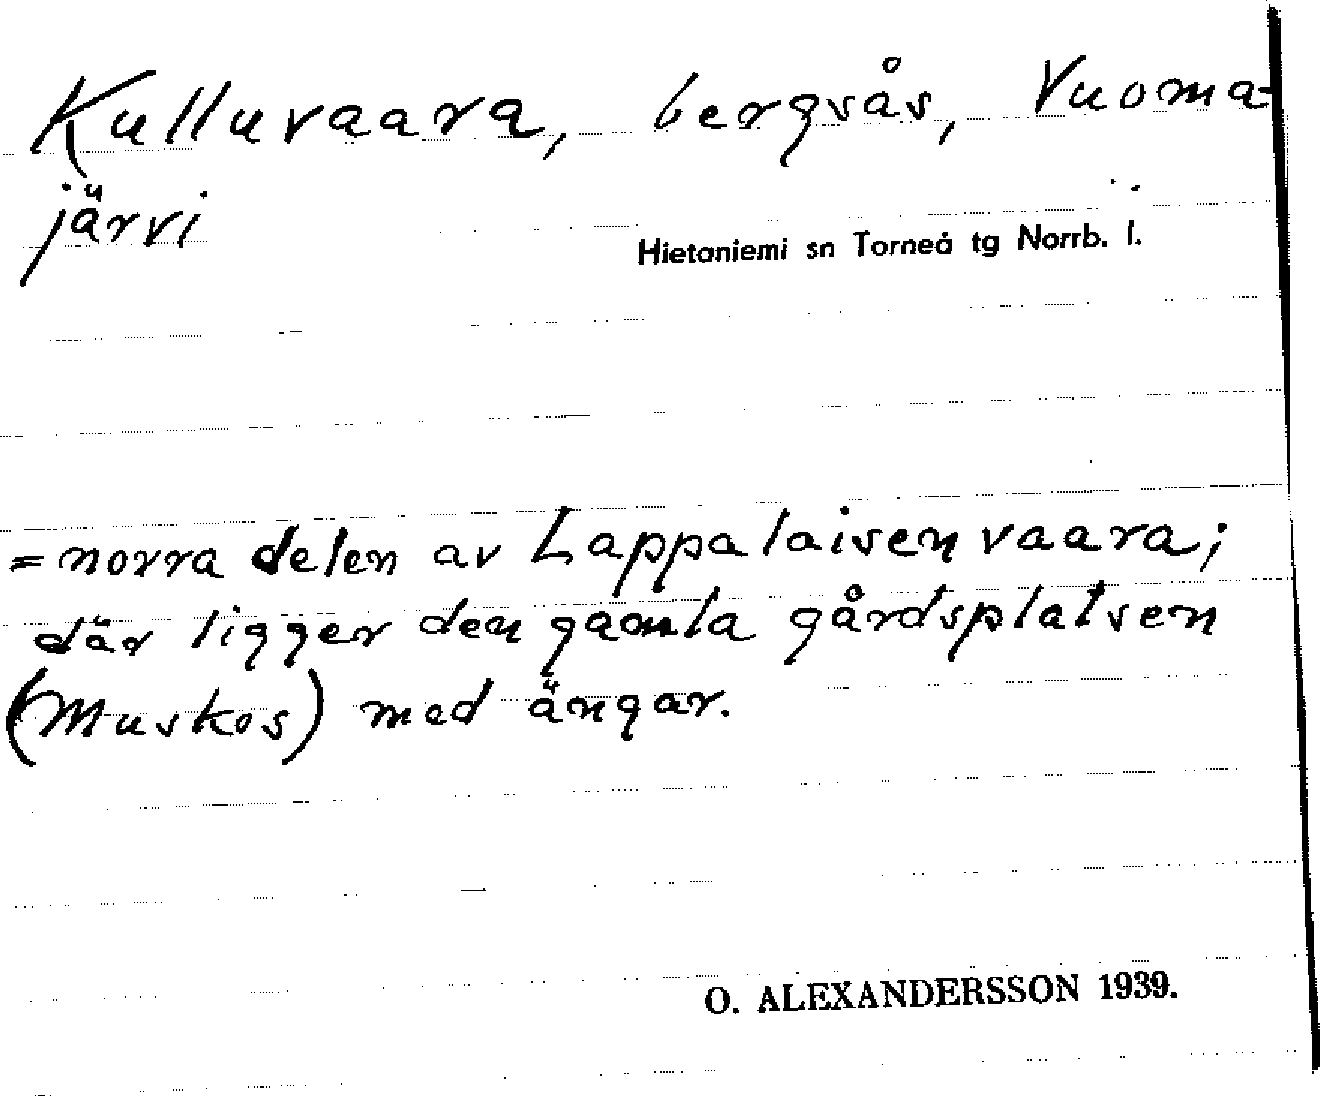 Kulluvaara, bergsås, Vuoma-
järvi
Hietaniemi sn Torneå tg Norrb. l.
= norra delen av Lappalaisenvaara;
där ligger den gamla gårdsplatsen
(Muskos) med ängar.
O. ALEXANDERSSON 1939.